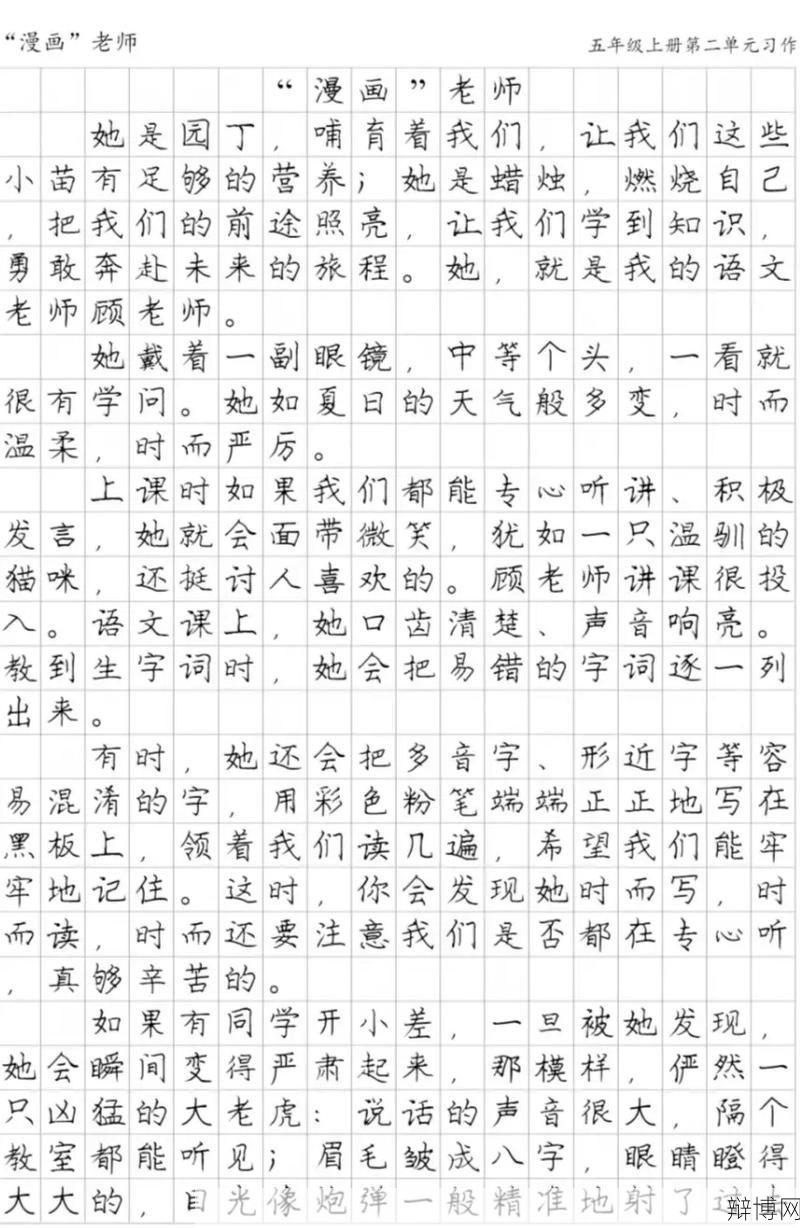 “漫画”老师
五年级上册第二单元习作
“漫画”老师
她是园丁，哺育着我们，让我们这些
小苗有足够的营养；她是蜡烛，燃烧自己
，把我们的前途照亮，让我们学到知识，
勇敢奔赴未来的旅程。她，就是我的语文
老师顾老师。
她戴着一副眼镜，中等个头，一看就
很有学问。她如夏日的天气般多变，时而
温柔，时而严厉。
上课时如果我们都能专心听讲、积极
发言，她就会面带微笑，犹如一只温驯的
猫咪，还挺讨人喜欢的。顾老师讲课很投
入。语文课上，她口齿清楚、声音响亮。
教到生字词时，她会把易错的字词逐一列
出来。
有时，她还会把多音字、形近字等容
易混淆的字，用彩色粉笔端端正正地写在
黑板上，领着我们读几遍，希望我们能牢
牢地记住。这时，你会发现她时而写，时
而读，时而还要注意我们是否都在专心听
，真够辛苦的。
如果有同学开小差，一旦被她发现，
她会瞬间变得严肃起来，那模样，俨然一
只凶猛的大老虎：说话的声音很大，隔个
教室都能听见；眉毛皱成八字，眼睛瞪得
大大的，目光像炮弹一般精准地射了过去
辩博网